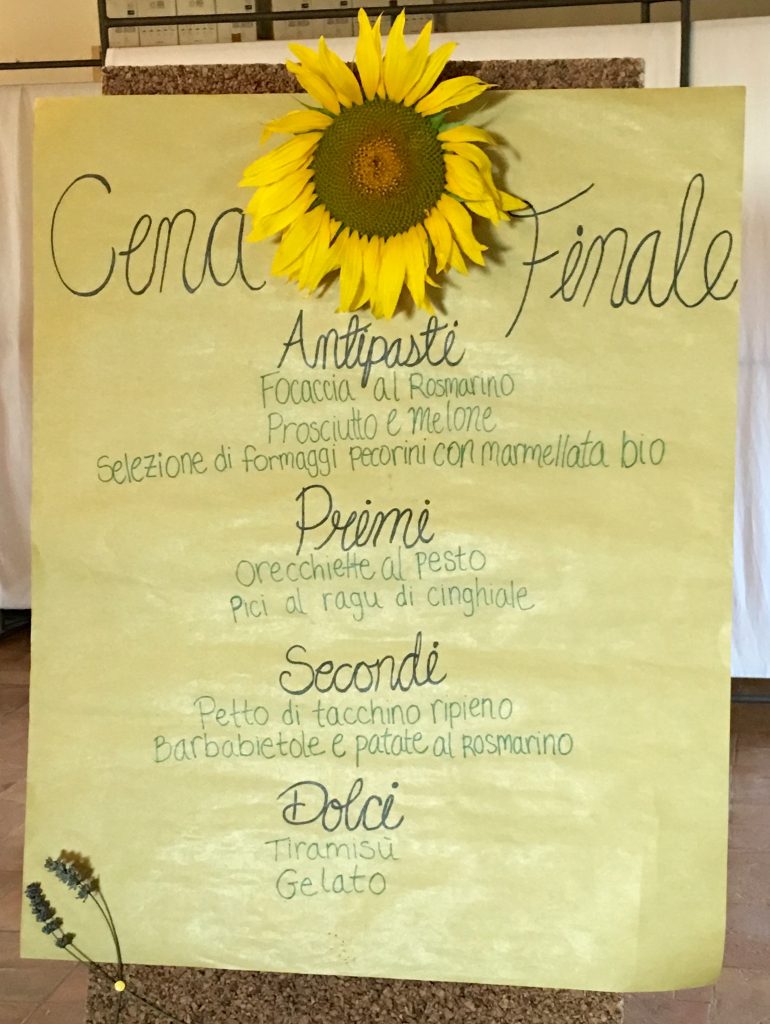 Cena Finale
Antipasti
Focaccia al Rosmarino
Prosciutto e Melone
Selezione di formaggi pecorini con marmellata bio
Primi
Orecchiette al pesto
Pici al ragu di cinghiale
Secondi
Petto di tacchino ripieno
Barbabietole e patate al Rosmarino
Dolci
Tiramisù
Gelato